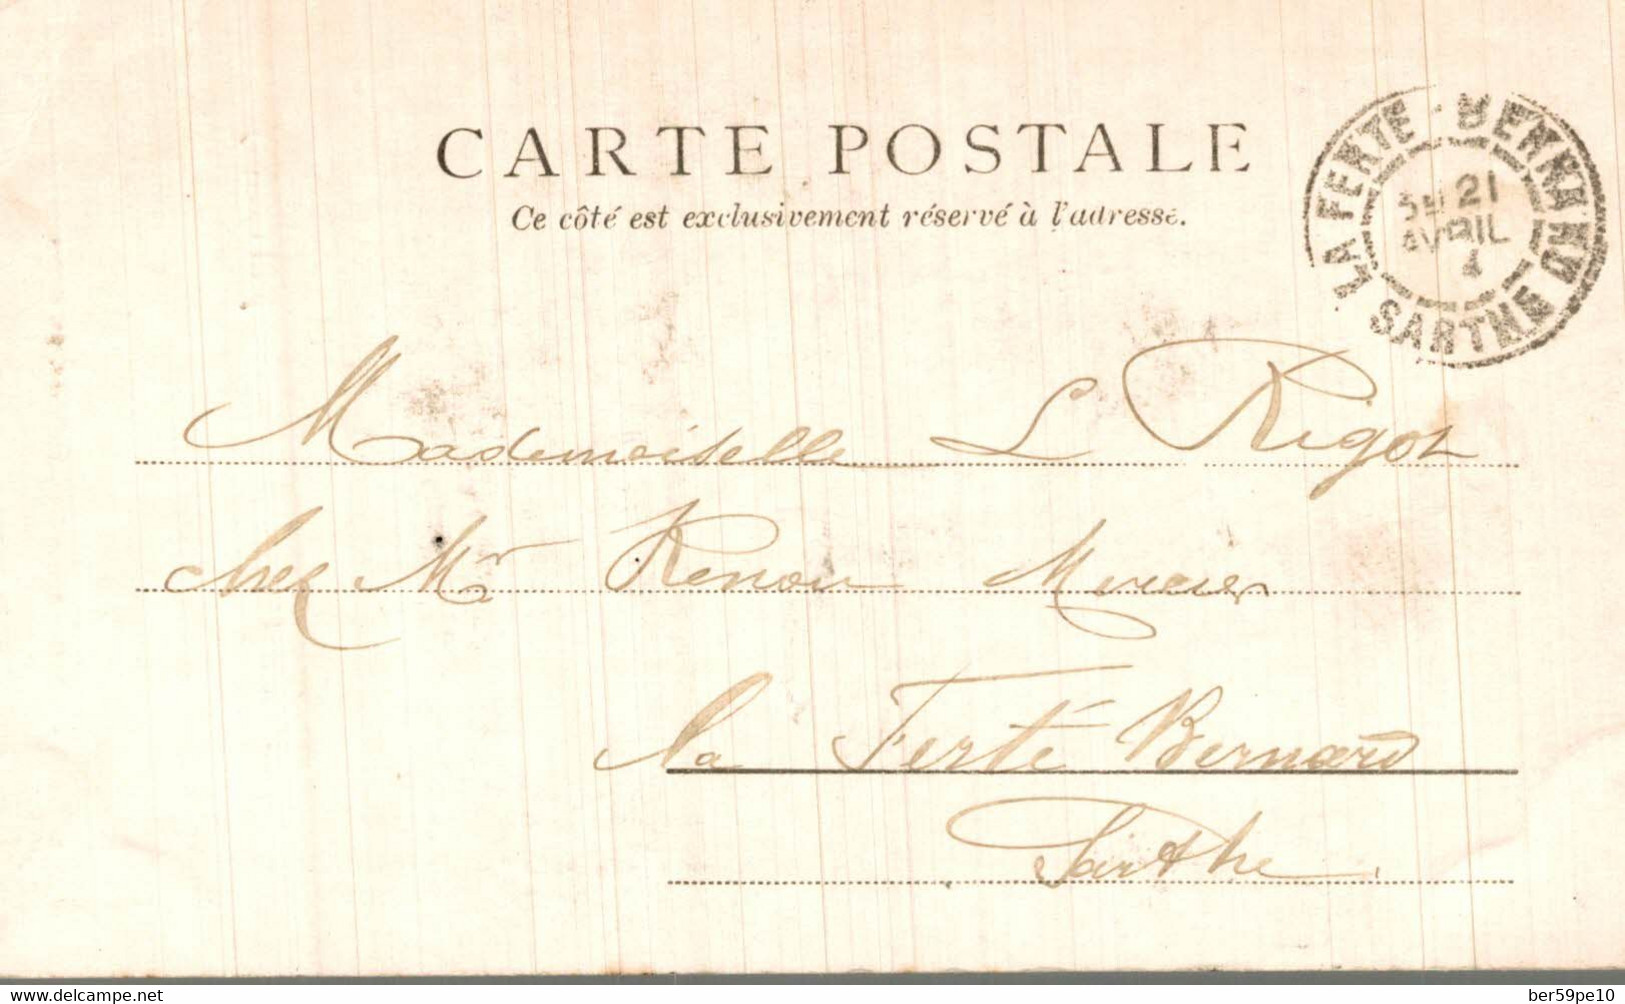 CARTE POSTALE
Ce côté est exclusivement réservé à l'adresse.
LA FERTE-BERNARD
21
AVRIL
SARTHE
Mademoiselle L Rigot
chez Mr Renou Mercier
la Ferté Bernard
Sarthe
delcampe.net
ber59pe10